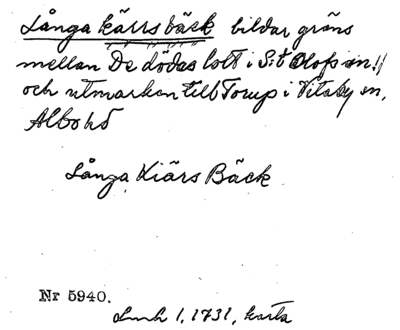 Långa kärrs bäck bildar gräns
mellan De dödas lott i S:t Olofs sn.
och utmarken till Torup i Vitaby sn,
Albo hd
Långa Kiärs Bäck
Nr 5940.
1, 1731, karta